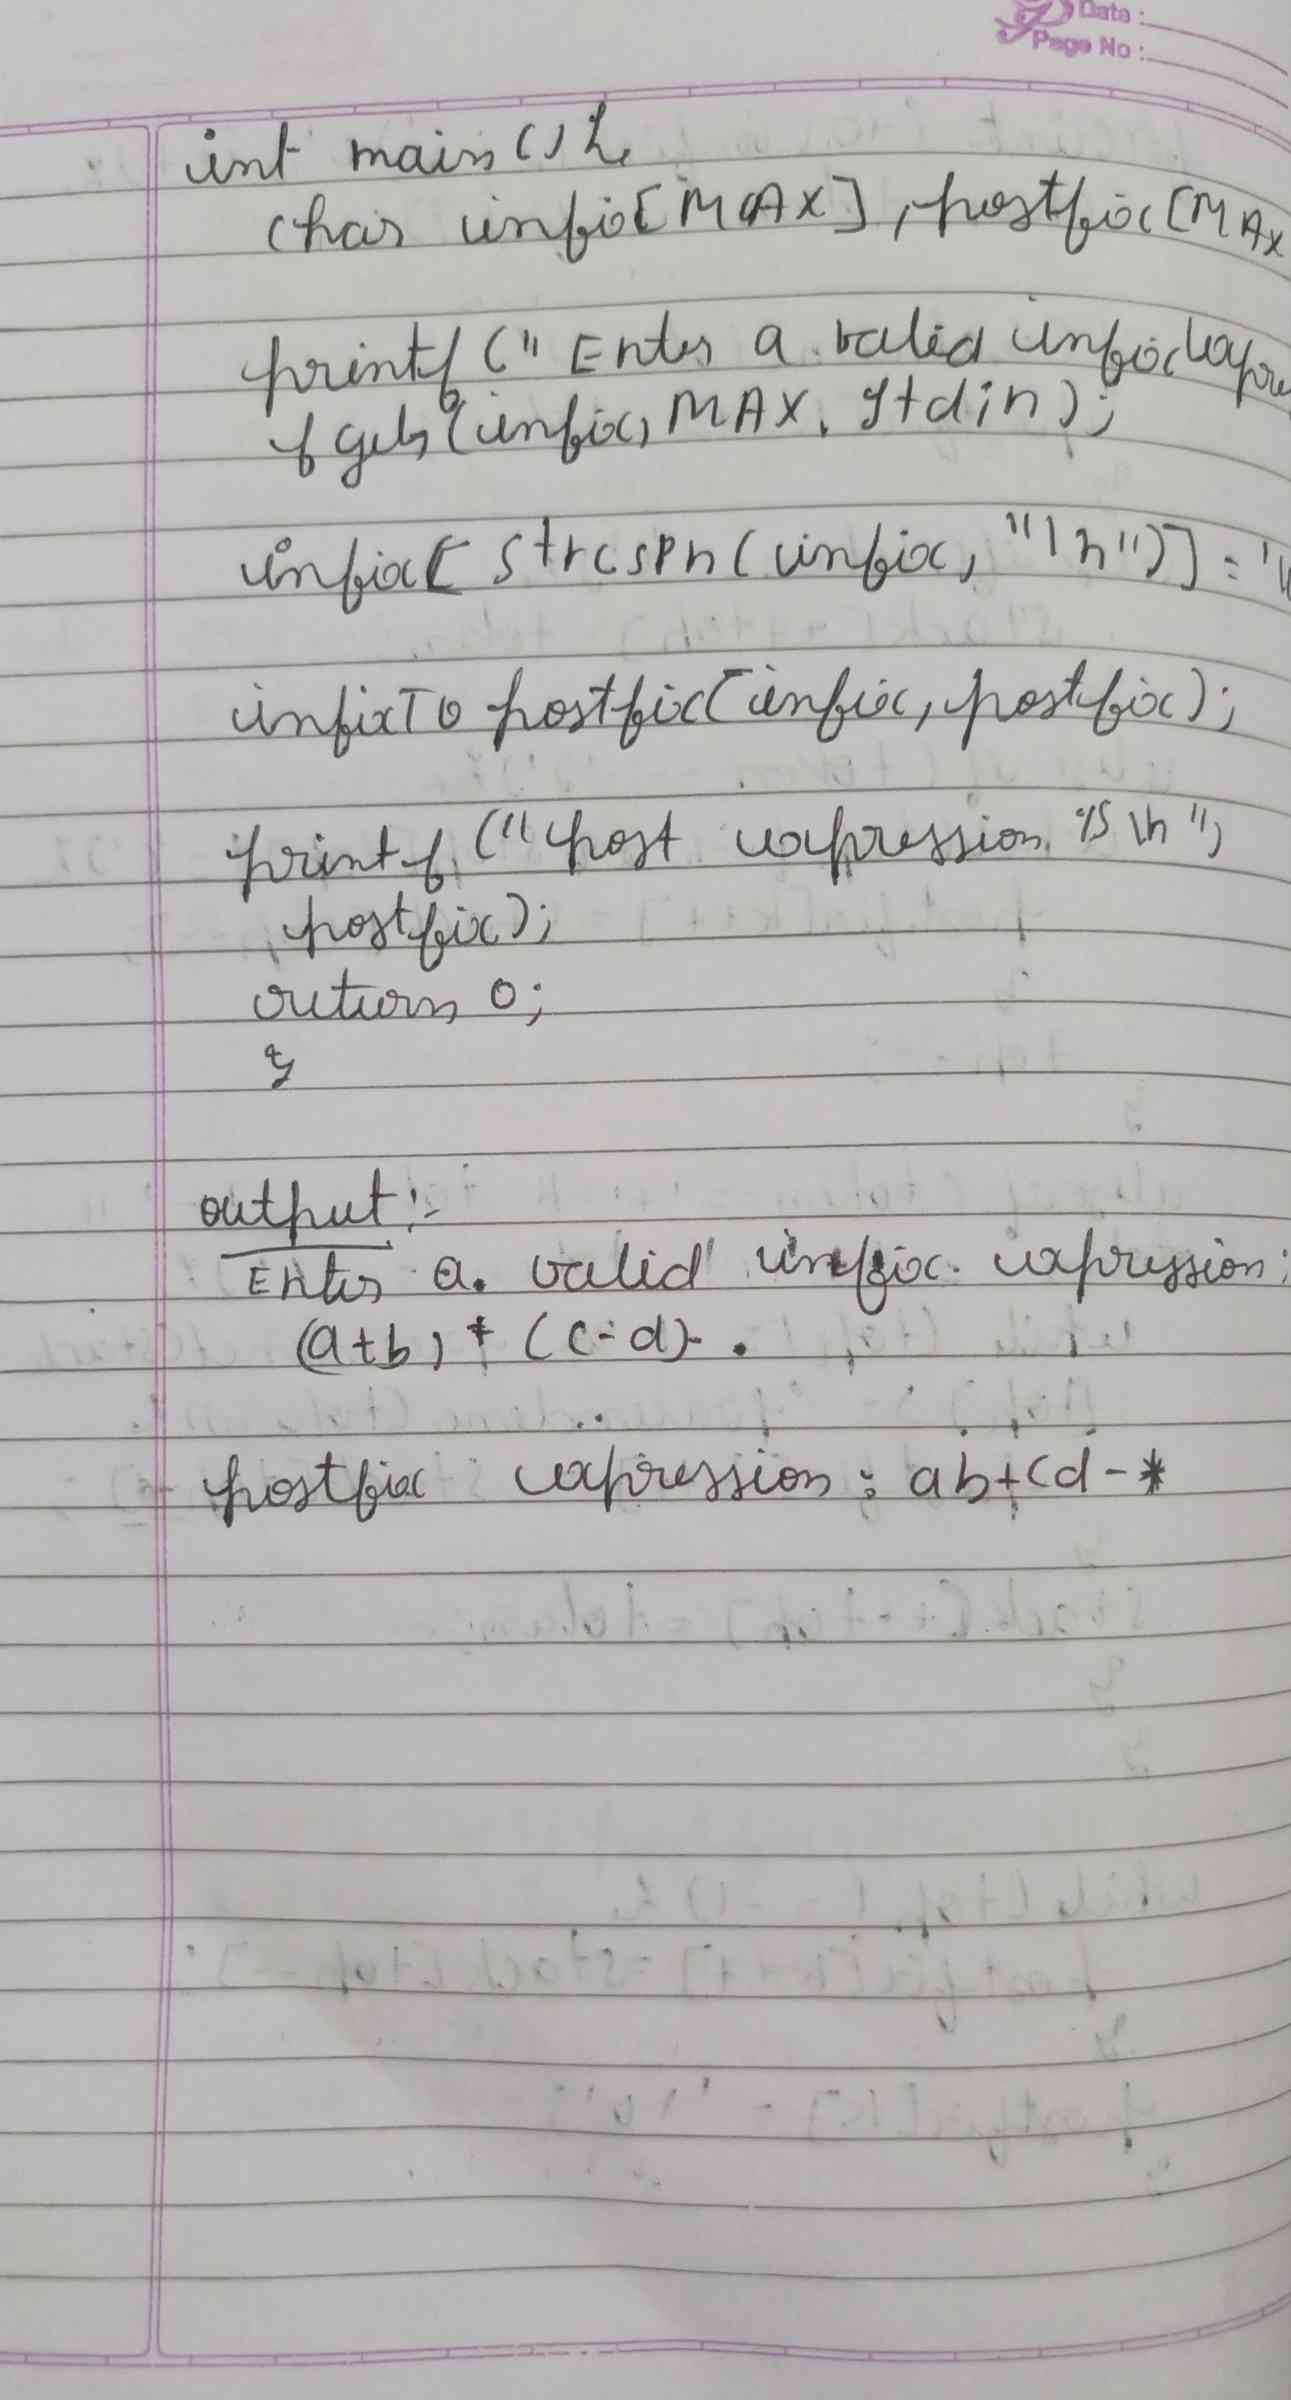 Data :
Page No :
int main() {
char infix[MAX], postfix[MAX
printf (" Enter a valid infix expre
fgets(infix, MAX, stdin);
infix[strcspn(infix, "\n")] = '\
infixTo postfix(infix, postfix);
printf ("post expression %s \n",
postfix);
return 0;
}
output :-
Enter a valid infix expression :
(a+b) * (c-d) .
postfix expression : ab+cd-*